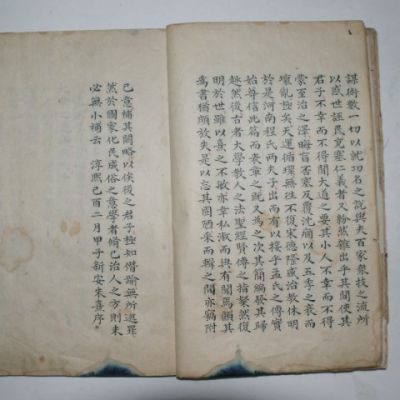 謀術數一切以就功名之說與夫百家衆技之流所
以惑世誣民充塞仁義者又紛然雜出乎其間使其
君子不幸而不得聞大道之要其小人不幸而不得
蒙至治之澤晦盲否塞反覆沈痼以及五季之衰而
壞亂極矣天運循環無往不復宋德隆盛治教休明
於是河南程氏兩夫子出而有以接乎孟氏之傳實
始尊信此篇而表章之既又爲之次其簡編發其歸
趣然後古者大學教人之法聖經賢傳之指粲然復
明於世雖以熹之不敏亦幸私淑而與有聞焉顧其
爲書猶頗放失是以忘其固陋采而輯之間亦竊附
己意補其闕略以俟後之君子極知僭踰無所逃罪
然於國家化民成俗之意學者脩己治人之方則未
必無小補云 淳熙己酉二月甲子新安朱熹序